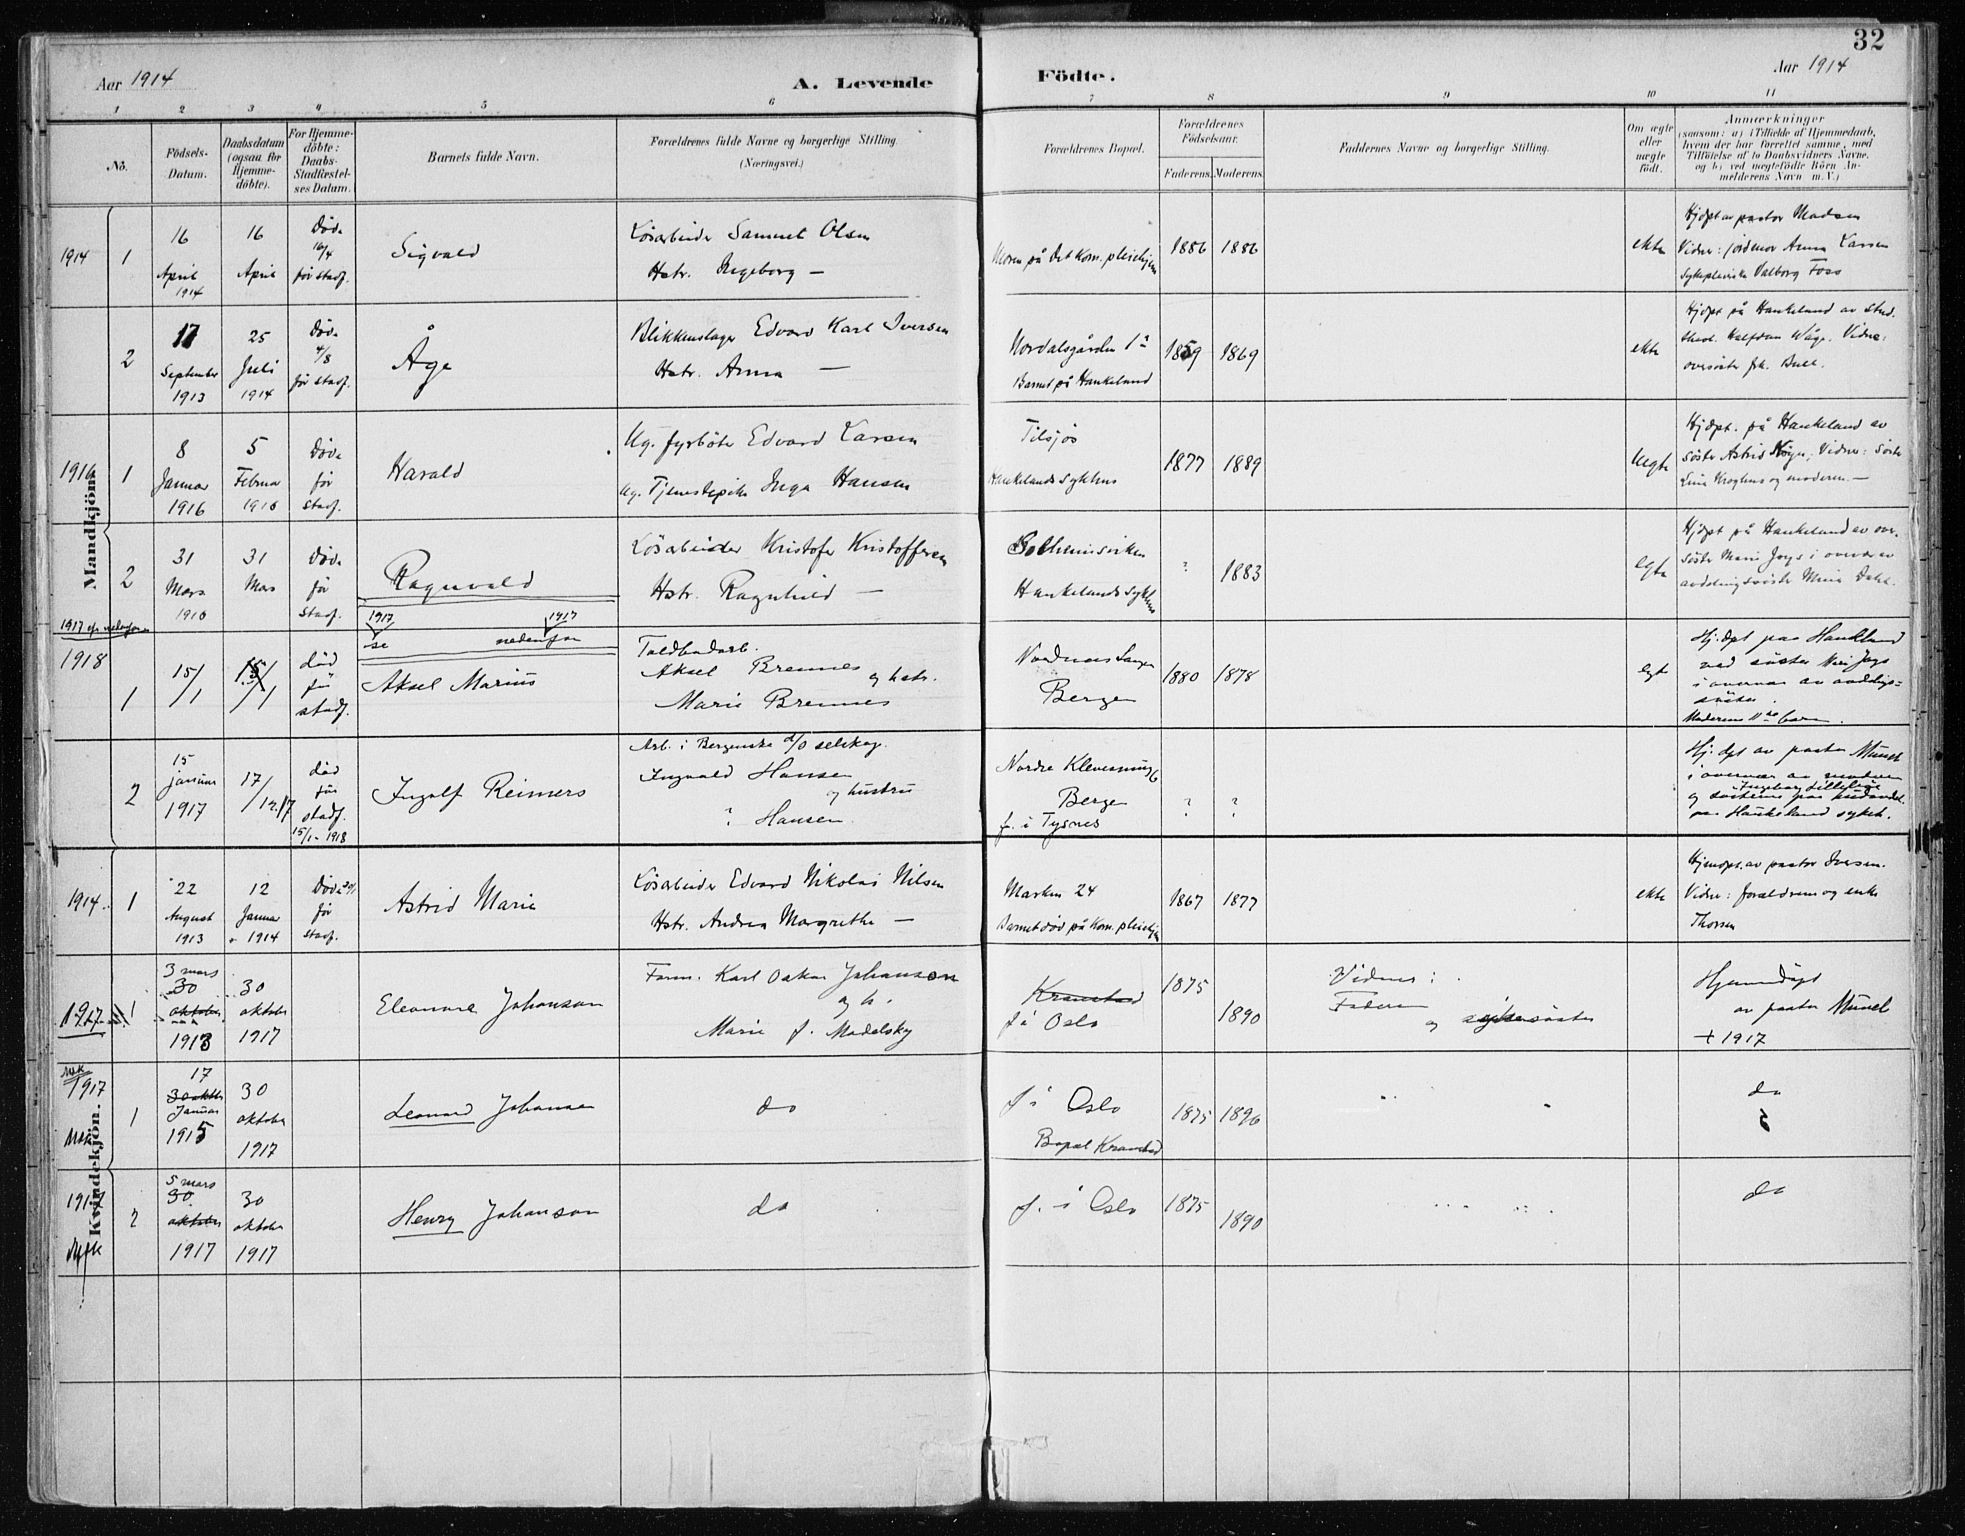 32
Aar 1914
A. Levende
Födte.
Aar 1914
1 2 3 4 5 6 7 8 9 10 11
No.
Födsels-
Datum.
Daabsdatum
(ogsaa for
Hjemme-
döbte).
For Hjemme-
döbte:
Daabs-
Stadfæstel-
ses Datum.
Barnets fulde Navn.
Forældrenes fulde Navne og borgerlige Stilling.
(Næringsvei.)
Forældrenes Bopæl.
Forældrenes
Födselsaar.
Faderens.
Moderens.
Faddernes Navne og borgerlige Stilling.
Om ægte
eller
uægte
födt.
Anmærkninger
(saasom: a) i Tilfælde af Hjemmedaab,
hvem der har forrettet samme, med
Tilföielse af to Daabsvidners Navne,
og b) ved uægtefödte Börn An-
melderens Navn m. V.)
Mandkjön.
1914
1
16
April
1914
16
April
Död
16/4
før stadf.
Sigvald
Løsarbeider Samuel Olsen
Hstr. Ingeborg —
Moren på Det kom. pleiehjem
1886
1886
ekte
Hjdøpt av pastor Madsen
Vidner: jordmor Anna Larsen
sykepleierske Valborg Foss
2
17
September
1913
25
Juli
1914
Död
4/8
før stadf.
Åge
Blikkenslager Edvard Karl Iversen
Hstr. Anna —
Nordalsgården 1a
Barnet på Haukeland
1859
1869
ekte
Hjdøpt på Haukeland av stud.
theol. Halfdan Wåge. Vidne:
oversöster frk. Bull.
1916
1
8
Januar
1916
5
Februar
1916
Död
før
stadf.
Harald
Ug. fyrbøter Edvard Larsen
Ug. Tjenestepike Inga Hansen
Tilsjøs
Haukelands sykehus
1877
1889
Uegte
Hjdpt. på Haukeland av
søster Astrid
Vidner: Søster
og moderen. —
2
31
Mars
1916
31
Mars
Død
før
stadf.
Ragnvald
Løsarbeider Kristofer Kristoffersen
Hstr. Ragnhild —
Solheimsviken
Haukelands sykehus
?
1883
egte
Hjdøpt på Haukeland av over-
søster Marie Joys i overvær av
avdelingssøster Marie Dahl.
1917 se nedenfor
1917
se
1917
nedenfor
1918
1
15/1
15/1
död
før
stadf.
Aksel Marius
Toldbodarb.
Aksel Brennes
og hstr.
Marie Brennes
Nordnes
Bergen
1880
1878
egt
Hj. dpt paa Haukeland
ved søster Joys
i overvær av avdelings-
søster.
Moderens 11te barn.
2
15
januar
1917
17/12.17
död
før
stadf.
15/1-1918
Ingolf Reimers
Arb. i Bergenske d/s selskap.
Ingvald Hansen
og hustru
? Hansen
Nordre Klevesmug 6
Bergen
f. i Tysnes
?
?
Hj. dpt av pastor Munch
i overvær av moderen
Ingeborg
og
paa Haukeland sykeh.
Kvindekjön.
1914
1
22
August
1913
12
Januar
1914
Död
før
stadf.
Astrid Marie
Løsarbeider Edvard Nikolai Nilsen
Hstr. Andrea Margrethe —
Marken 24
Barnet død på Kom. pleiehjem
1867
1877
ekte
Hjemdpt. av pastor Iversen.
Vidner: forældrene og enke
Thorsen
1917
1
3 mars
30
oktober
1913
30
oktober
1917
Eleonore Johanson
Form. Karl Oskar Johanson
og h.
Marie f. Madelsky
Kranstad
f i Oslo
1875
1890
Vidner:
Faderen
og sykesøster
Hjemmedøpt
av pastor Munch
+ 1917
1917
1
17
30 oktober
Januar
1915
30
oktober
1917
Leonard Johansen
do
f i Oslo
Bopæl Kranstad
1875
1896
do
1917
2
5 mars
30
oktober
1917
30
oktober
1917
Henry Johanson
do
f. i Oslo
1875
1890
do